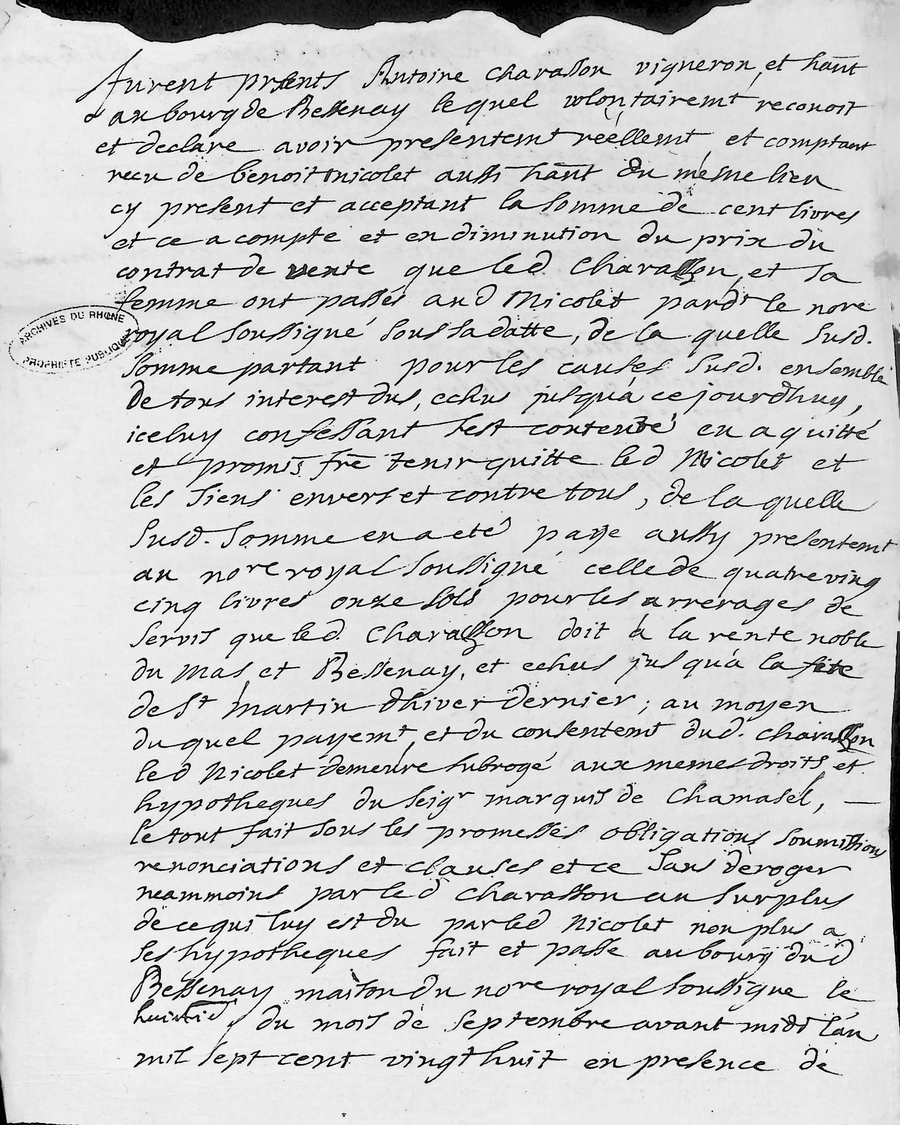 furent prsents Antoine Charasson vigneron, et hant
au bourg de Bessenay lequel volontairemt reconoit
et declare avoir presentemt réellemt et comptant
recu de benoit nicolet aussi hant du même lieu
cy present et acceptant la somme de cent livres
et ce a compte et en diminution du prix du
contrat de vente que led Charasson, et sa
femme ont passés aud Nicolet pardt le nore
royal soussigné sous sa datte, de la quelle susd.
somme partant pour les causes susd. ensemble
de tous interest dus, echus jusqu'a ce jourdhuy,
iceluy confessant s'est contenté en a quitté
et promis fre tenir quitte led Nicolet et
les siens envers et contre tous, de la quelle
susd. somme en a eté paye aussy presentemt
au nore royal soussigné celle de quatre ving
cinq livres onze sols pour les arrerages de
servis que led. Charasson doit à la rente noble
du Mas, et Bessenay, et echus jusqu'a la fête
de St Martin d'hiver dernier; au moyen
du quel payemt, et du consentemt dud. Charasson
led Nicolet demeure subrogé aux memes droits et
hypotheques du seigr marquis de Chamasel, —
le tout fait sous les promesses obligations soumissions
renonciations et clauses et ce sans deroger
neammoins par led Charasson au surplus
de ce qui luy est du par led Nicolet non plus a
ses hypotheques fait et passe au bourg dud
Bessenay maison du nore royal soussigne le
huictie du mois de septembre avant midi l'an
mil sept cent vingt huit en presence de
ARCHIVES DU RHONE
PROPRIETE PUBLIQUE